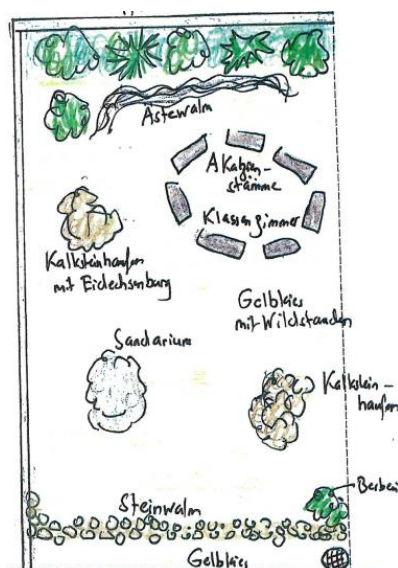 Ästewalm
Akazien-
stämme
Klassenzimmer
Kalksteinhaufen
mit Eidechsenburg
Gelbkies
mit Wildstauden
Sandarium
Kalkstein-
haufen
Steinwalm
Gelbkies